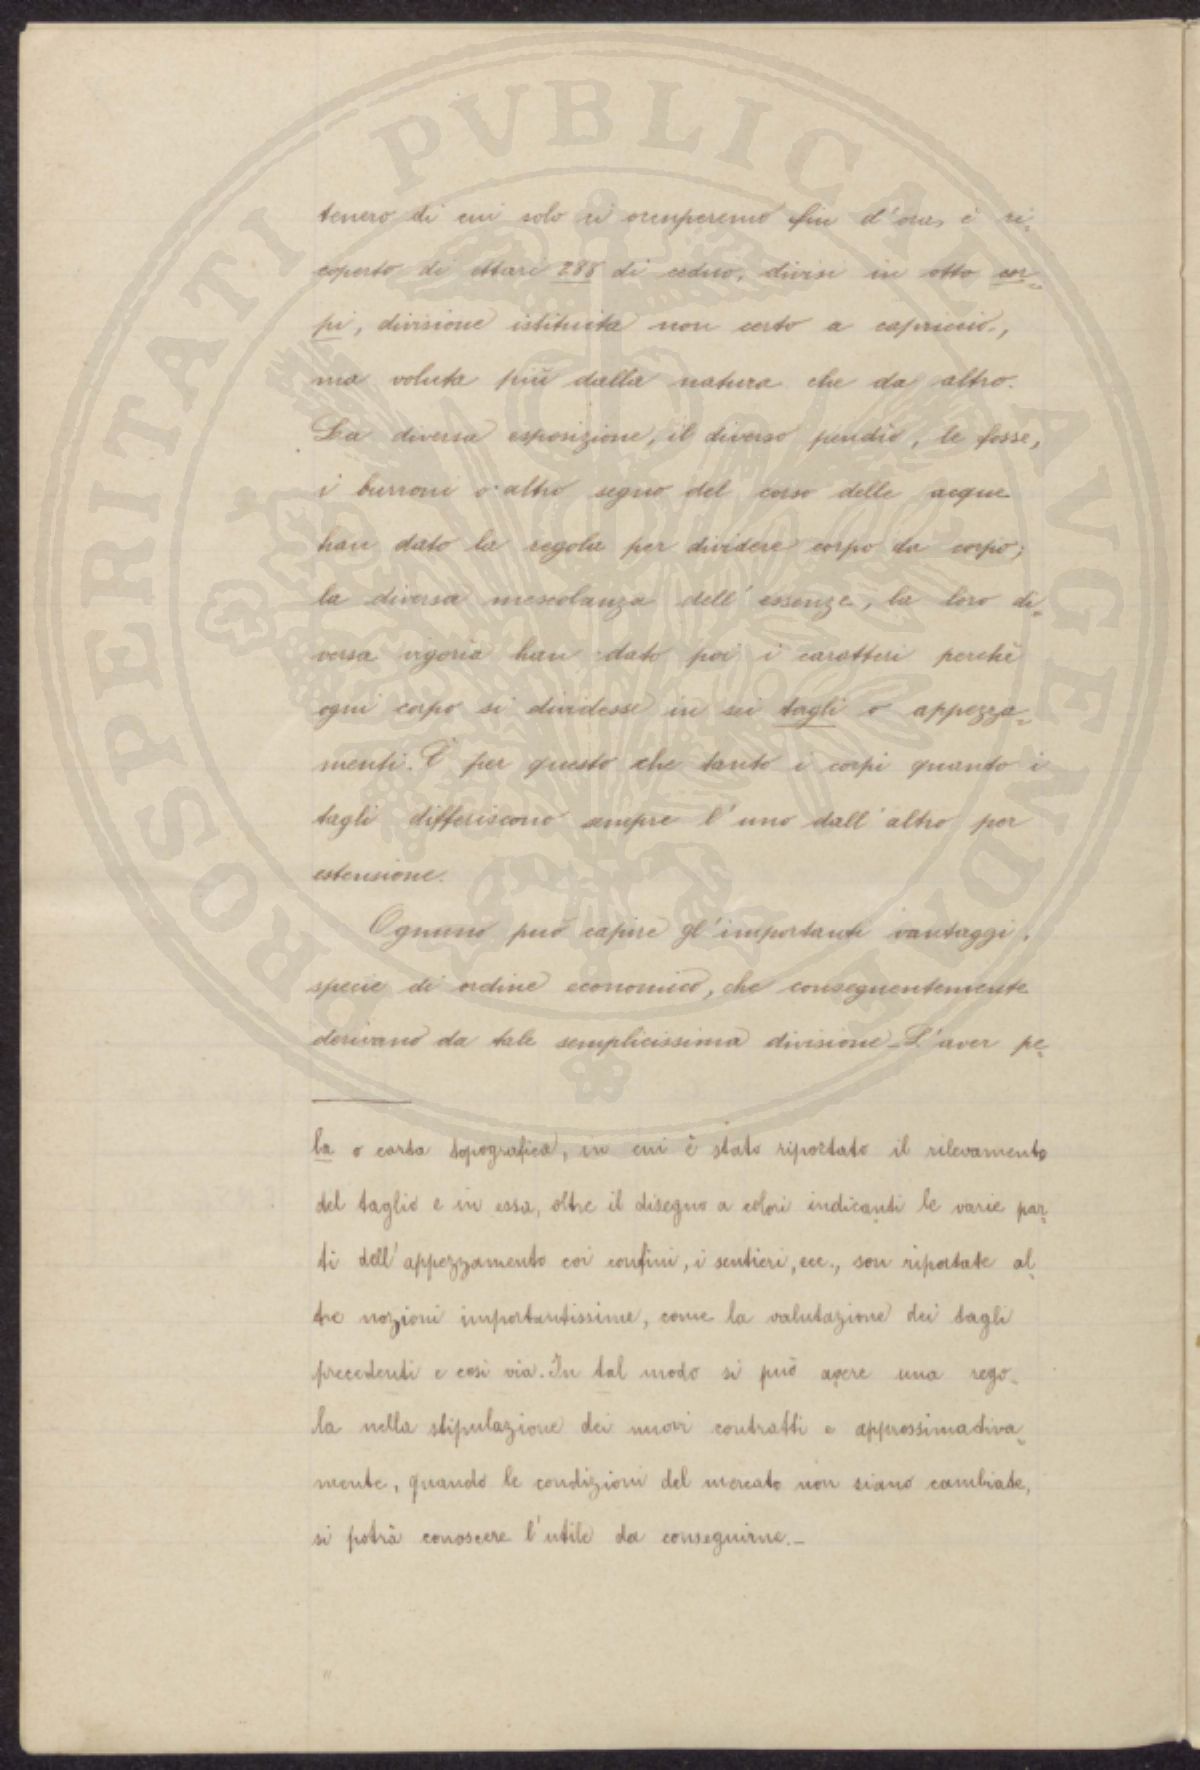 tenero di cui solo ci occuperemo fin d'ora, è ri-
coperto di ettari 288 di ceduo, divisi in otto cor-
pi, divisione istituita non certo a capriccio,
ma voluta più dalla natura che da altro.
La diversa esposizione, il diverso pendio, le fosse,
i burroni o altro segno del corso delle acque
han dato la regola per dividere corpo da corpo;
la diversa mescolanza dell'essenze, la loro di-
versa vigoria han dato poi i caratteri perchè
ogni corpo si dividesse in sei tagli o appezza-
menti. È per questo che tanto i corpi quanto i
tagli differiscono sempre l'uno dall'altro per
estensione.
Ognuno può capire gl'importanti vantaggi,
specie di ordine economico, che conseguentemente
derivano da tale semplicissima divisione. L'aver pe-
la o carta topografica, in cui è stato riportato il rilevamento
del taglio e in essa, oltre il disegno a colori indicanti le varie par-
ti dell'appezzamento coi confini, i sentieri, ecc., son riportate al-
tre nozioni importantissime, come la valutazione dei tagli
precedenti e così via. In tal modo si può avere una rego-
la nella stipulazione dei nuovi contratti e approssimativa-
mente, quando le condizioni del mercato non siano cambiate,
si potrà conoscere l'utile da conseguirne. –
PROSPERITATI PVBLICAE AVGENDAE